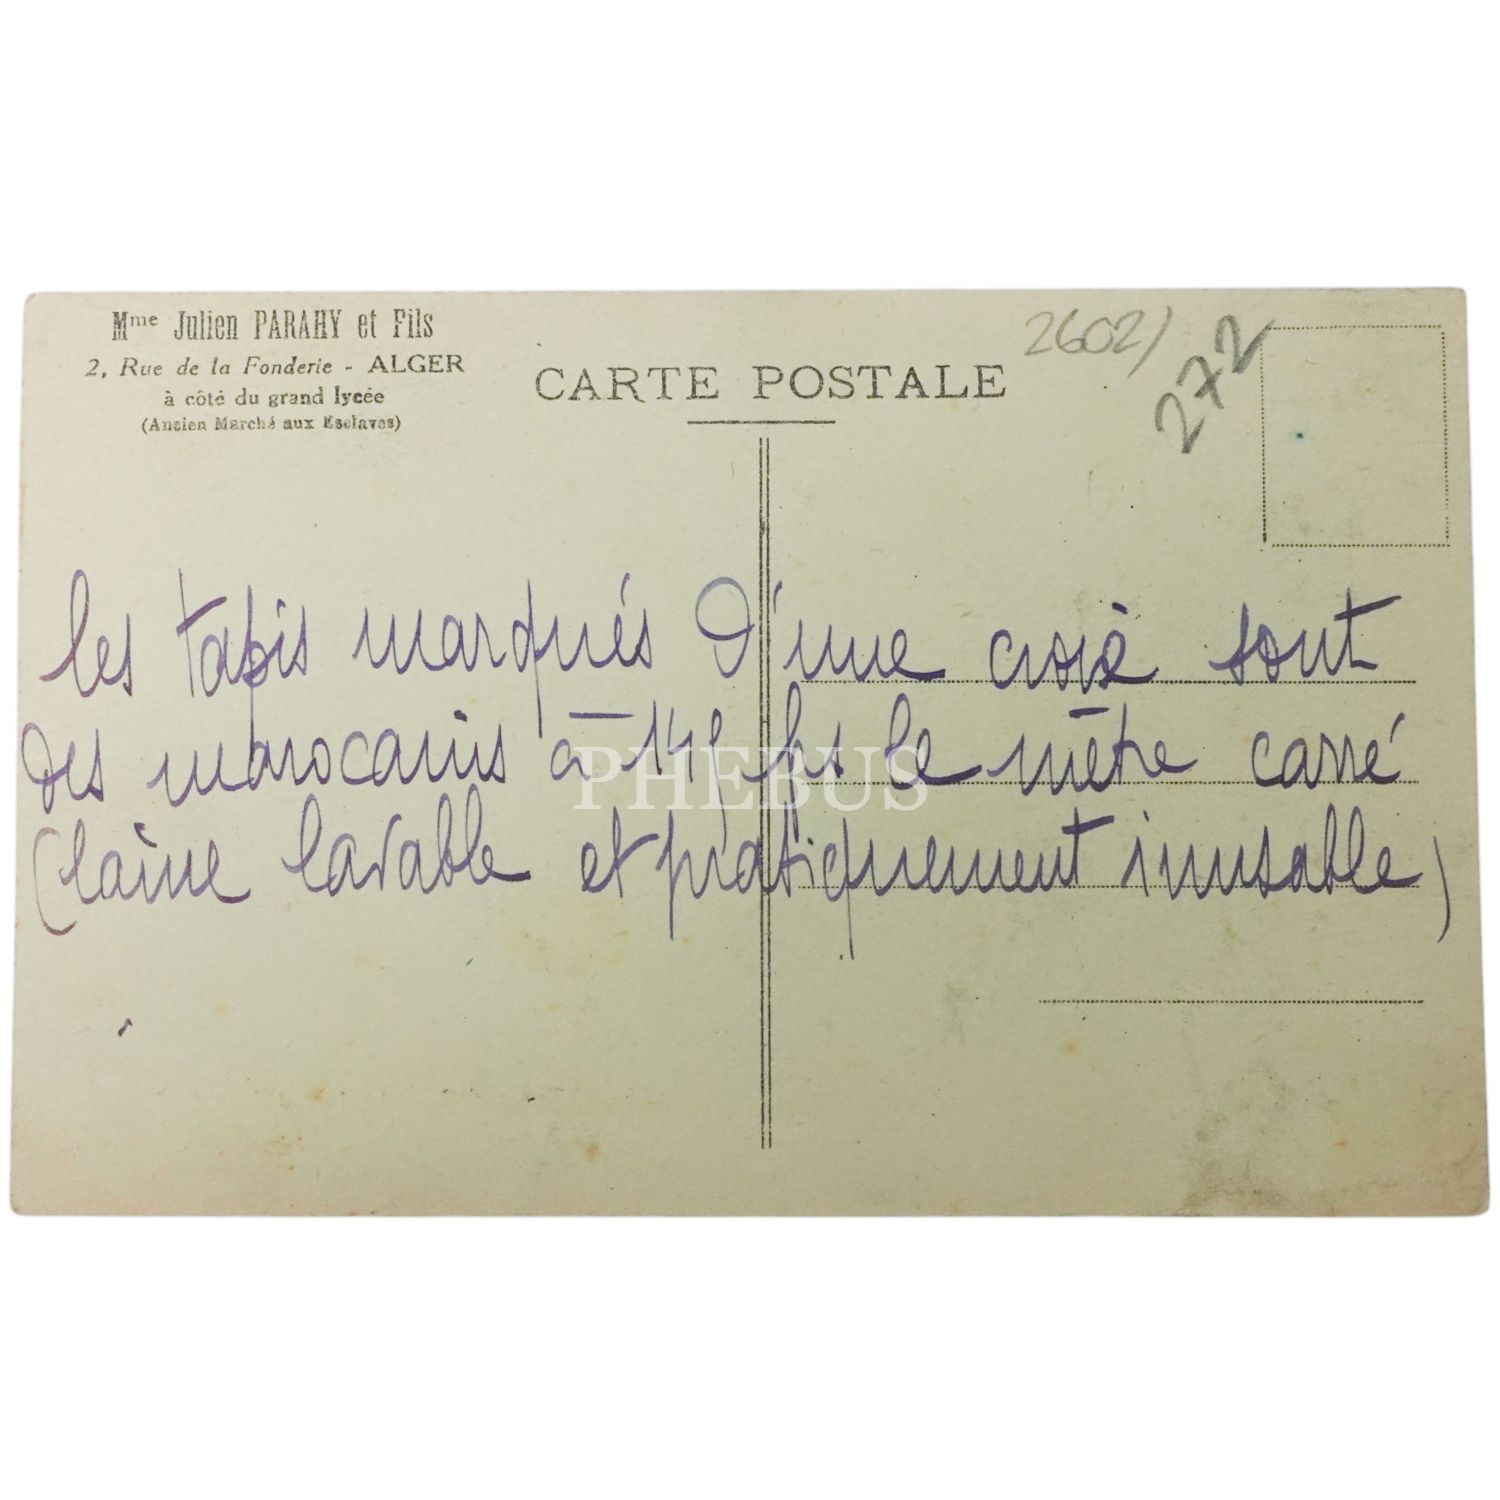 Mme Julien PARAHY et Fils
2, Rue de la Fonderie - ALGER
à côté du grand lycée
(Ancien Marché aux Esclaves)
CARTE POSTALE
2602/
272
les tapis marqués d'une croix sont
des marocains à frs le mètre carré
(laine lavable et pratiquement inusable)
PHEBUS